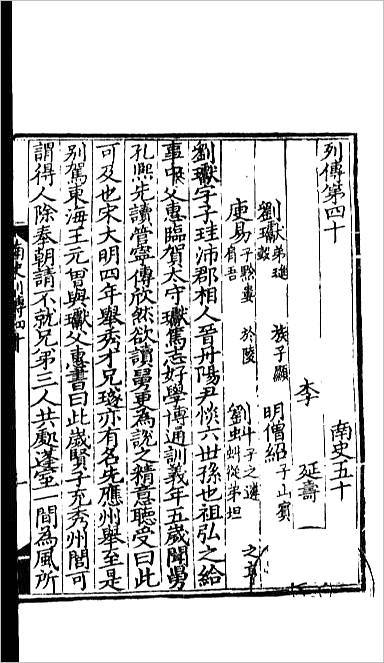 列傳第四十　南史五十
李　延壽
劉瓛弟璡　族子顯　瑴　明僧紹子山賓
庾易子黔婁　於陵　肩吾　劉虬子之遴　之亨　虬從弟坦
劉瓛字子珪沛郡相人晉丹陽尹惔六世孫也祖弘之給
事中父惠臨賀大守瓛篤志好學博通訓義年五歲聞舅
孔熙先讀管寧傳欣然欲讀舅更為說之精意聽受曰此
可及也宋大明四年舉秀才兄璲亦有名先應州舉至是
別駕東海王元曾與瓛父惠書曰此歲賢子充秀州閭可
謂得人除奉朝請不就兄弟三人共處蓬室一間為風所
南史列傳四十